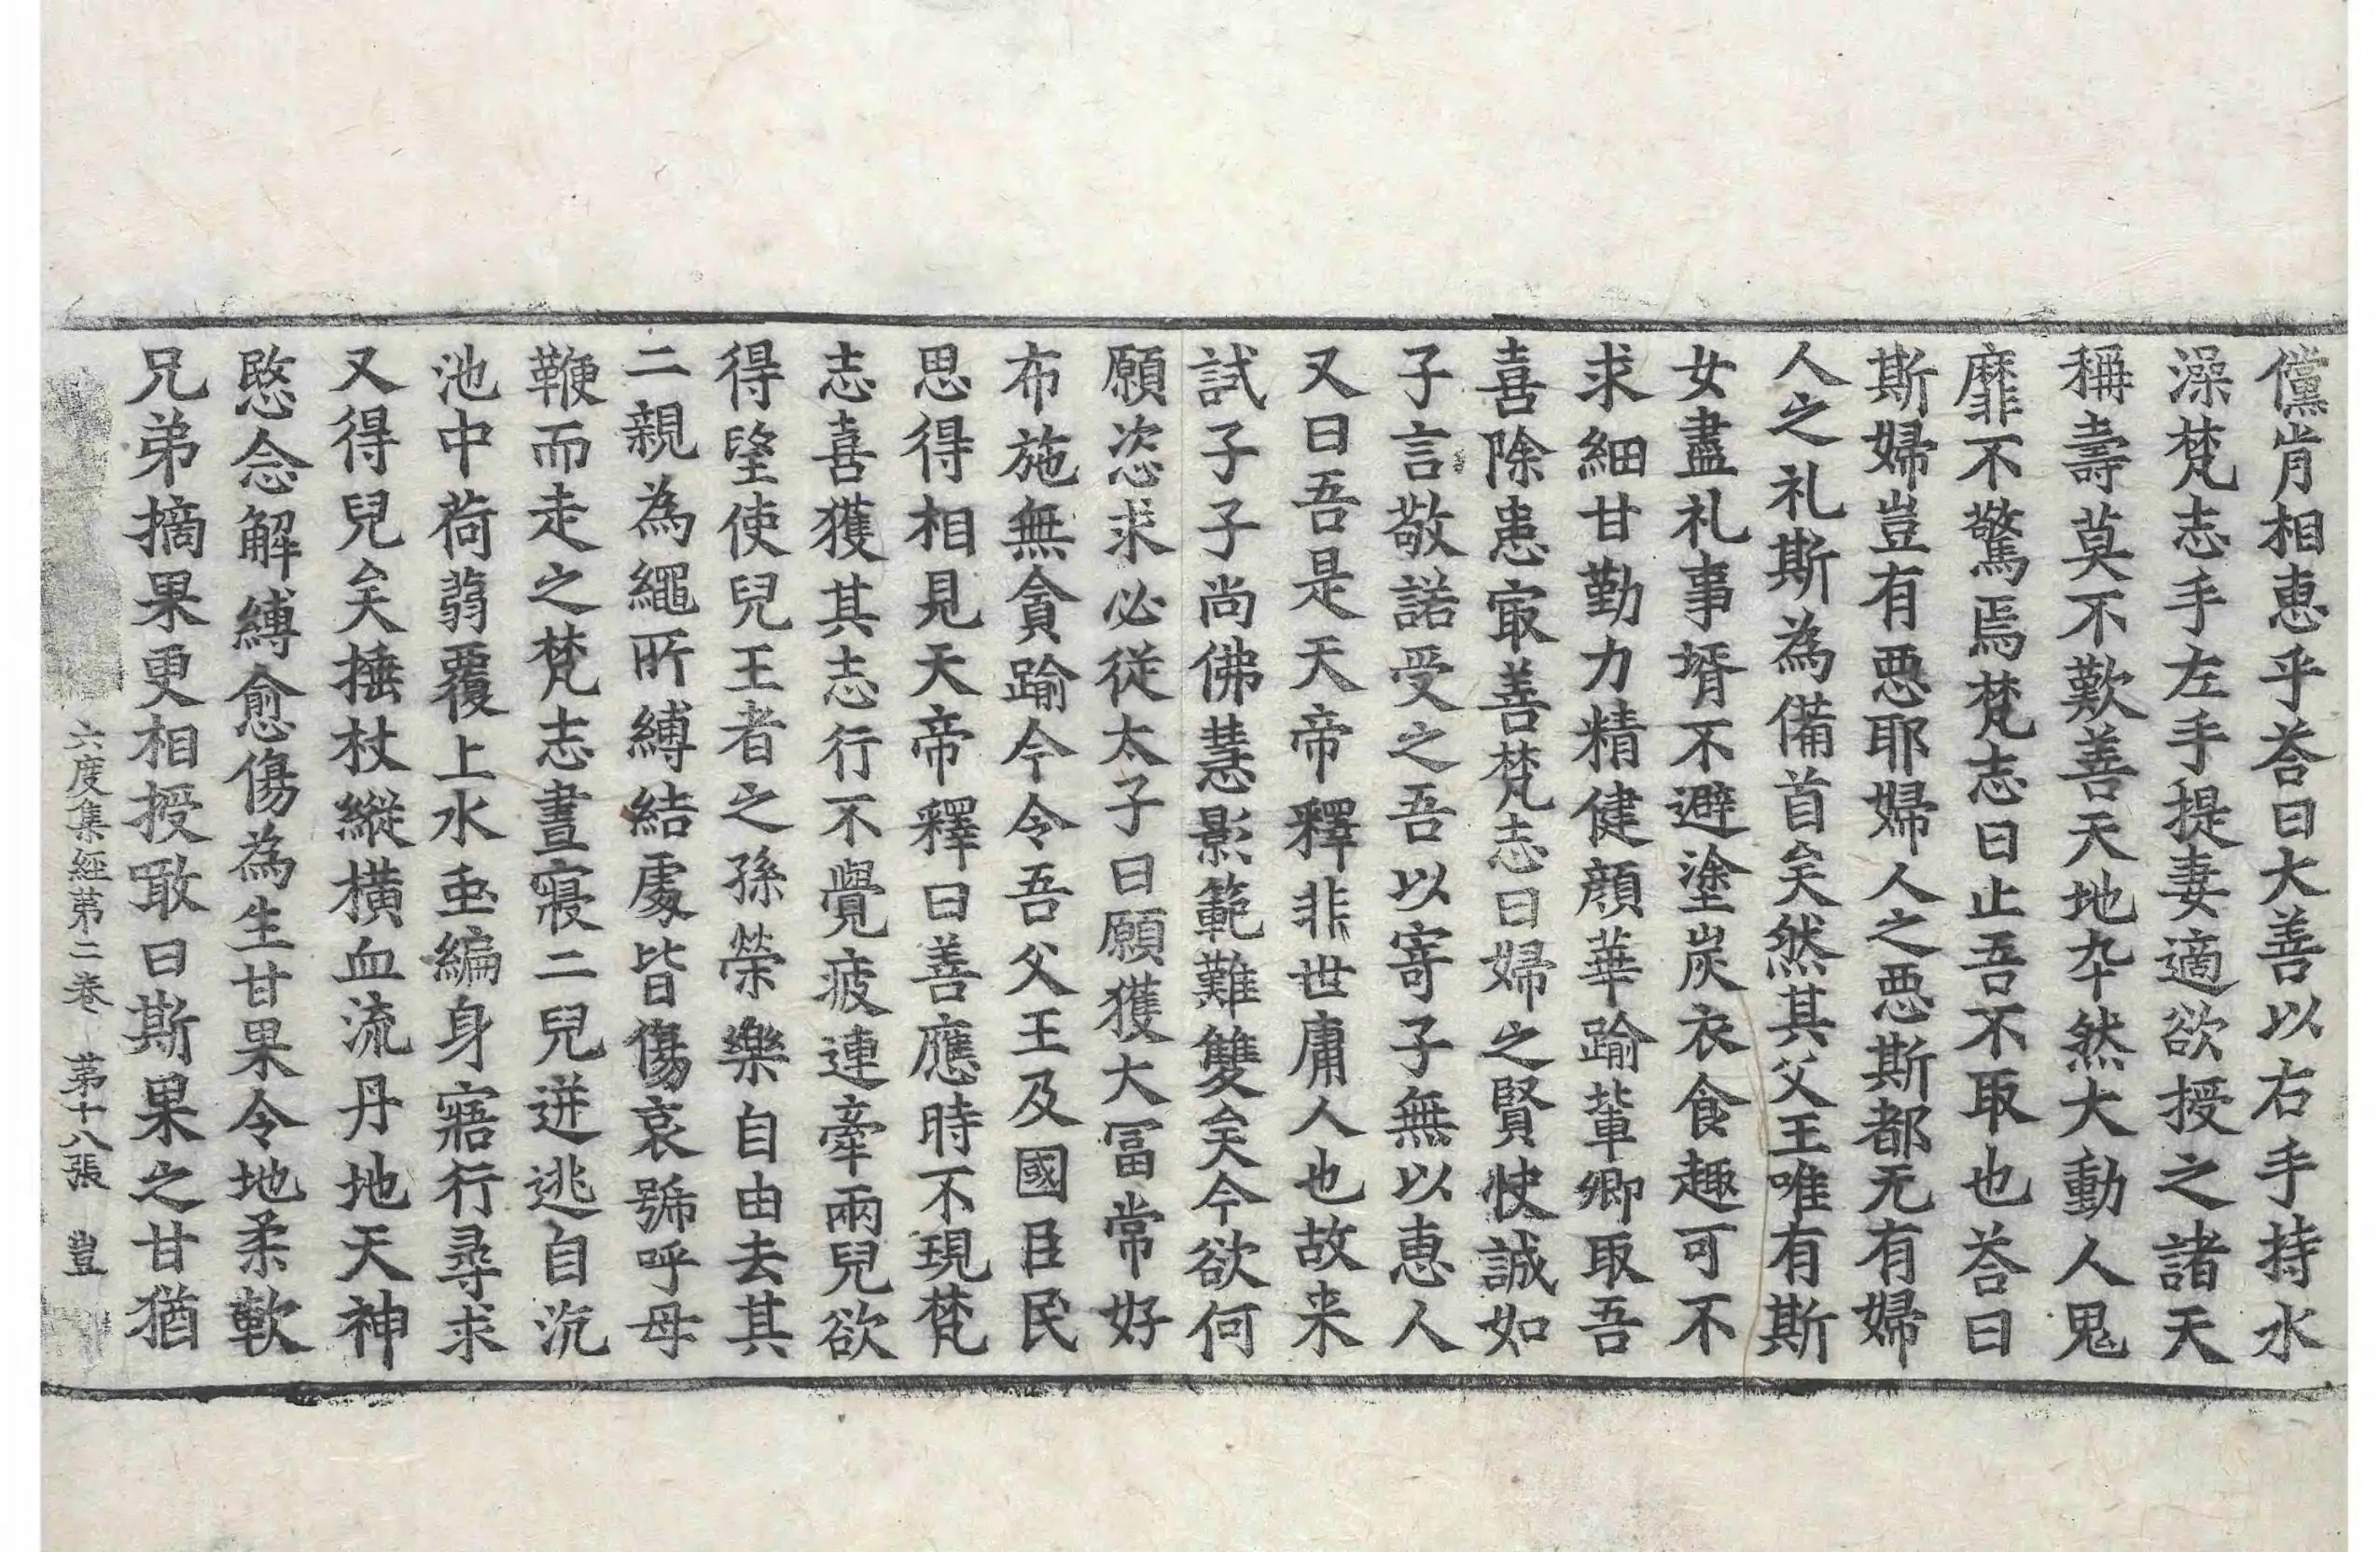 儻肯相惠乎荅曰大善以右手持水
澡梵志手左手提妻適欲授之諸天
稱壽莫不歎善天地卒然大動人鬼
靡不驚焉梵志曰止吾不取也荅曰
斯婦豈有惡耶婦人之惡斯都无有婦
人之礼斯為備首矣然其父王唯有斯
女盡礼事壻不避塗炭衣食趣可不
求細甘勤力精健顏華踰輩卿取吾
喜除患冣善梵志曰婦之賢快誠如
子言敬諾受之吾以寄子無以惠人
又曰吾是天帝釋非世庸人也故来
試子子尚佛慧影範難雙矣今欲何
願恣求必從太子曰願獲大冨常好
布施無貪踰今令吾父王及國臣民
思得相見天帝釋曰善應時不現梵
志喜獲其志行不覺疲連牽兩兒欲
得望使兒王者之孫榮樂自由去其
二親為繩所縛結處皆傷哀號呼母
鞭而走之梵志晝寢二兒迸逃自沉
池中荷蒻覆上水虫編身寤行尋求
又得兒矣捶杖縱橫血流丹地天神
愍念解縛愈傷為生甘果令地柔軟
兄弟摘果更相授噉曰斯果之甘猶
六度集經第二卷 第十八張 豈